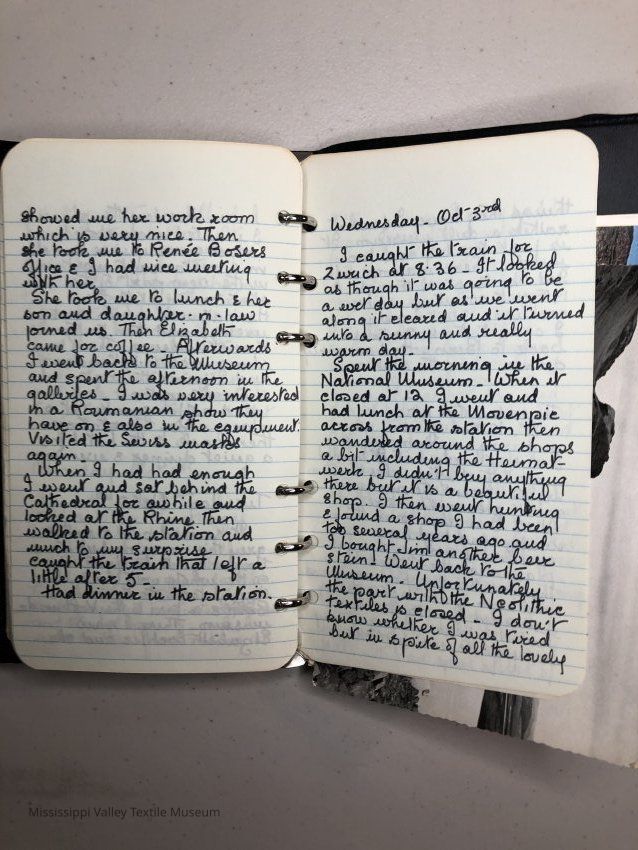 showed me her work room
which is very nice. Then
she took me to Renée Bosers
office & I had nice meeting
with her.
She took me to lunch & her
son and daughter-in-law
joined us. Then Elizabeth
came for coffee. Afterwards
I went back to the Museum
and spent the afternoon in the
galleries - I was very interested
in a Roumanian show they
have on & also in the equipment.
Visited the Swiss masks
again.
When I had had enough
I went and sat behind the
Cathedral for awhile and
looked at the Rhine then
walked to the station and
much to my surprise
caught the train that left a
little after 5 -
Had dinner in the station.
Wednesday - Oct 3rd
I caught the train for
Zurich at 8.36 - It looked
as though it was going to be
a wet day but as we went
along it cleared and it turned
into a sunny and really
warm day -
Spent the morning in the
National Museum - When it
closed at 12 I went and
had lunch at the Movenpic
across from the station then
wandered around the shops
a bit including the Heimat-
werk. I didn't buy anything
there but it is a beautiful
shop. I then went hunting
& found a shop I had been
to several years ago and
I bought Jim another beer
stein. Went back to the
Museum. Unfortunately
the part with the Neolithic
textiles is closed - I don't
know whether I was tired
but in spite of all the lovely
Mississippi Valley Textile Museum